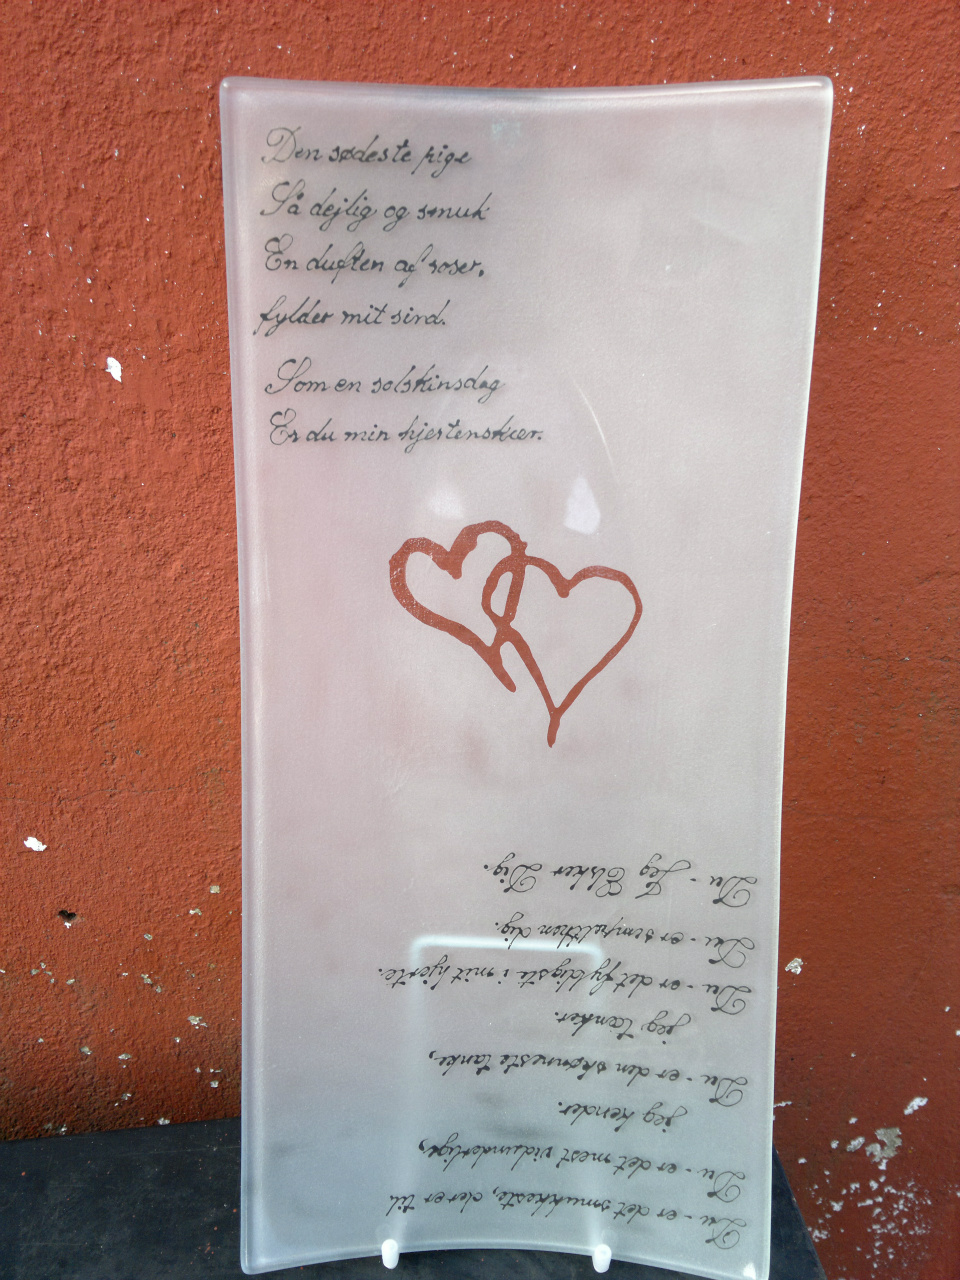 Den sødeste pige
Så dejlig og smuk
En duften af roser,
fylder mit sind.
Som en solskinsdag
Er du min hjertenskær.
Du - er det smukkeste, der er til
Du - er det mest vidunderlige,
jeg kender.
Du - er den skønneste tanke,
jeg tænker.
Du - er det fyldigste i mit hjerte.
Du - er
dig.
Du - Jeg Elsker Dig.